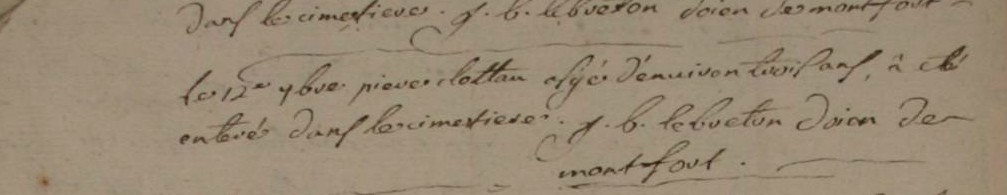 dans le cimetiere. j. b. lebreton doien de montfort
le 12e 7bre pierre clottau agé d'enuiron trois ans, à eté
enteré dans le cimetiere. j. b. lebreton doien de
montfort.